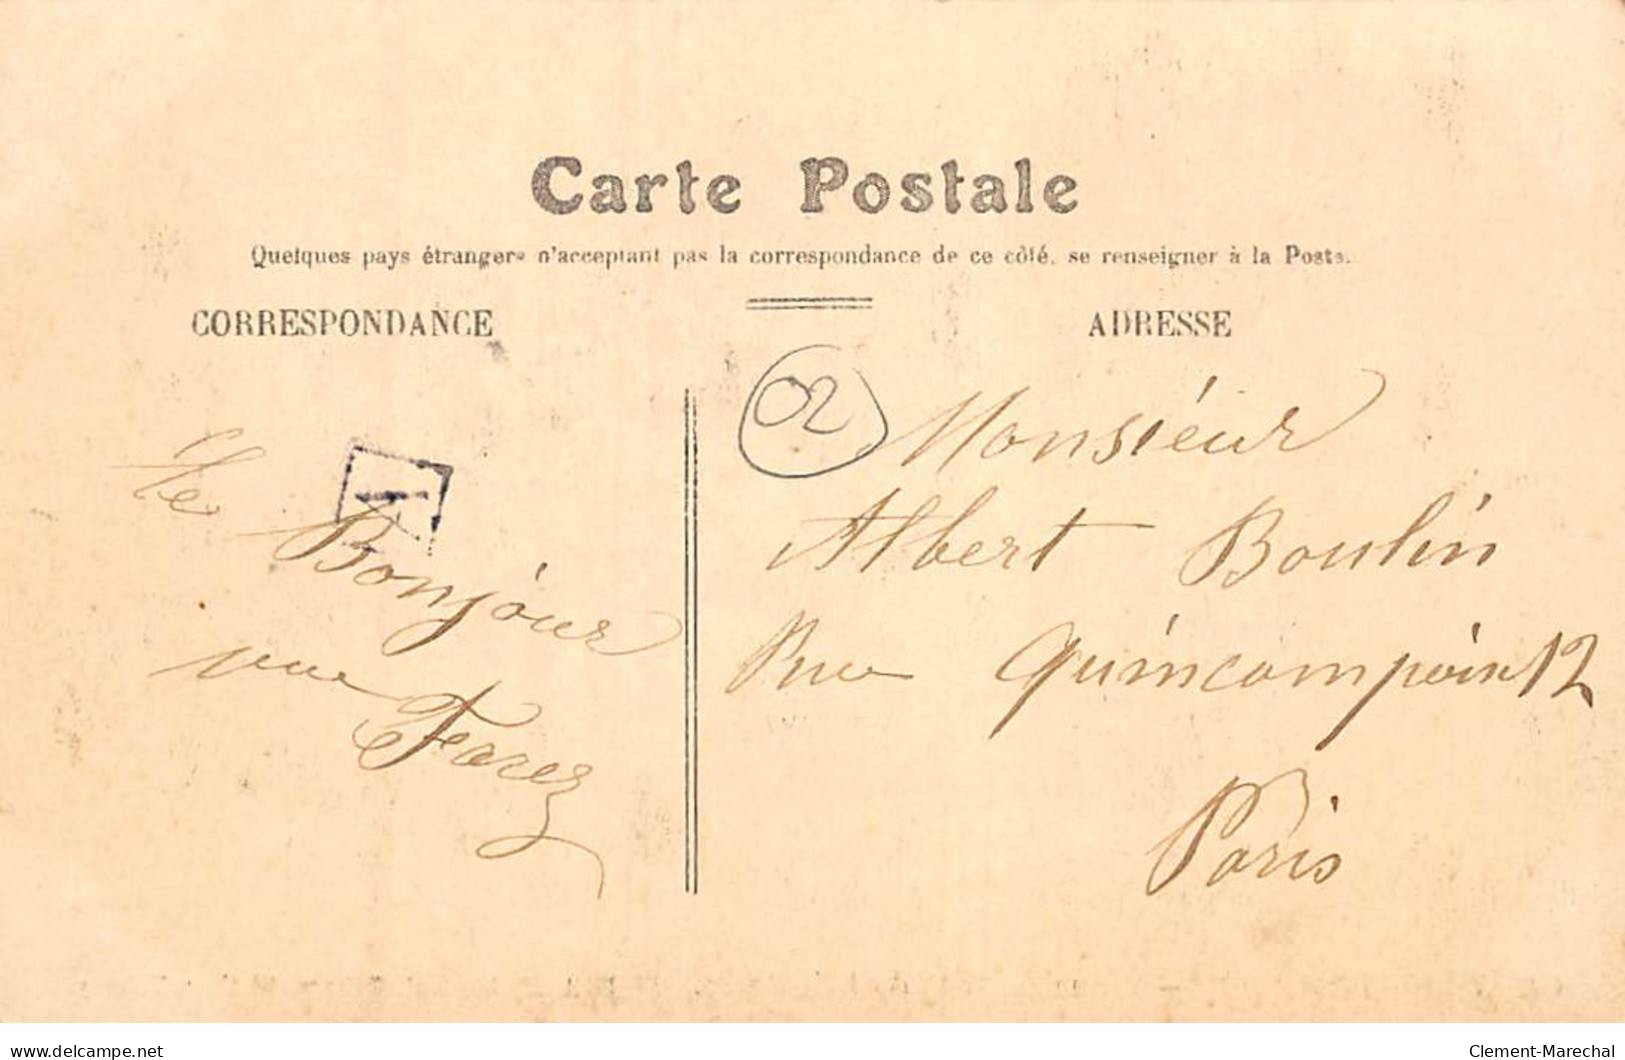 Carte Postale
Quelques pays étrangers n'acceptant pas la correspondance de ce côté, se renseigner à la Poste.
CORRESPONDANCE
ADRESSE
le
Bonjour
Farez
02
Monsieur
Albert Boulin
Rue Quincampoix 12
Paris
delcampe.net
Clement-Marechal